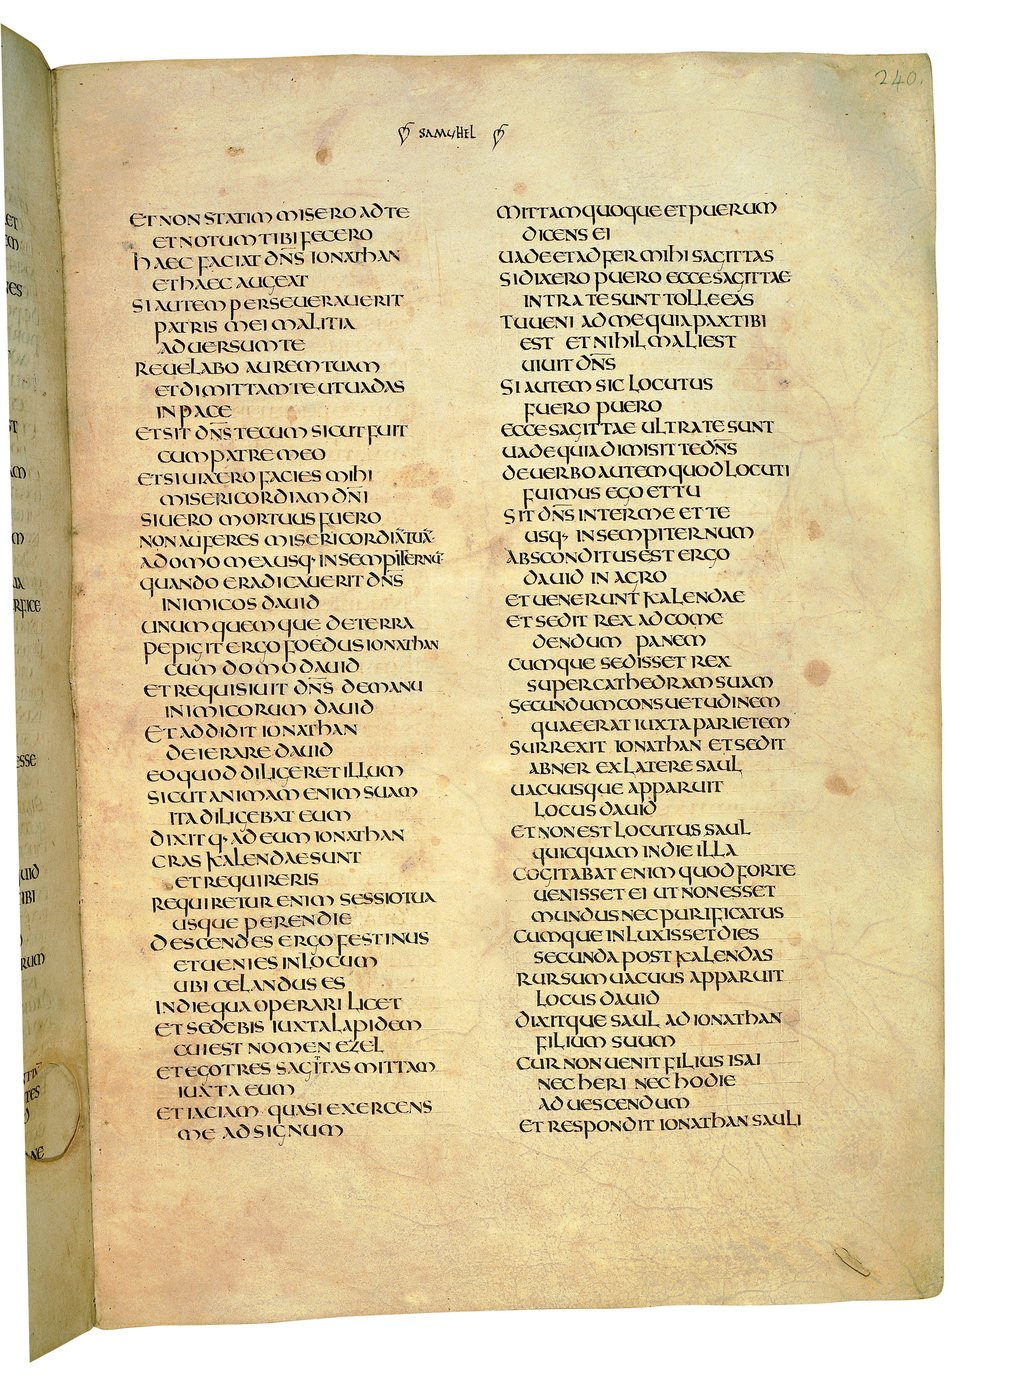 240.
SAMUHEL
ET NON STATIM MISERO AD TE
ET NOTUM TIBI FECERO
HAEC FACIAT DN̅S IONATHAN
ET HAEC AUGEAT
SI AUTEM PERSEUERAUERIT
PATRIS MEI MALITIA
ADUERSUM TE
REUELABO AUREM TUAM
ET DIMITTAM TE UT UADAS
IN PACE
ET SIT DN̅S TECUM SICUT FUIT
CUM PATRE MEO
ET SI UIXERO FACIES MIHI
MISERICORDIAM DN̅I
SI UERO MORTUUS FUERO
NON AUFERES MISERICORDIĀ TUĀ·
A DOMO MEA USQ· IN SEMPITERNŪ·
QUANDO ERADICAUERIT DN̅S
INIMICOS DAUID
UNUM QUEMQUE DE TERRA
PEPIGIT ERGO FOEDUS IONATHAN
CUM DOMO DAUID
ET REQUISIUIT DN̅S DE MANU
INIMICORUM DAUID
ET ADDIDIT IONATHAN
DEIERARE DAUID
EO QUOD DILIGERET ILLUM
SICUT ANIMAM ENIM SUAM
ITA DILIGEBAT EUM
DIXITQ· AD EUM IONATHAN
CRAS KALENDAE SUNT
ET REQUIRERIS
REQUIRETUR ENIM SESSIO TUA
USQUE PERENDIE
DESCENDES ERGO FESTINUS
ET UENIES IN LOCUM
UBI CELANDUS ES
IN DIE QUA OPERARI LICET
ET SEDEBIS IUXTA LAPIDEM
CUI EST NOMEN EZEL
ET EGO TRES SAGITAS MITTAM
IUXTA EUM
ET IACIAM QUASI EXERCENS
ME AD SIGNUM
MITTAM QUOQUE ET PUERUM
DICENS EI
UADE ET ADFER MIHI SAGITTAS
SI DIXERO PUERO ECCE SAGITTAE
INTRA TE SUNT TOLLE EAS
TU UENI AD ME QUIA PAX TIBI
EST ET NIHIL MALI EST
UIUIT DN̅S
SI AUTEM SIC LOCUTUS
FUERO PUERO
ECCE SAGITTAE ULTRA TE SUNT
UADE QUIA DIMISIT TE DN̅S
DE UERBO AUTEM QUOD LOCUTI
FUIMUS EGO ET TU
SIT DN̅S INTER ME ET TE
USQ· IN SEMPITERNUM
ABSCONDITUS EST ERGO
DAUID IN AGRO
ET UENERUNT KALENDAE
ET SEDIT REX AD COME
DENDUM PANEM
CUMQUE SEDISSET REX
SUPER CATHEDRAM SUAM
SECUNDUM CONSUETUDINEM
QUAE ERAT IUXTA PARIETEM
SURREXIT IONATHAN ET SEDIT
ABNER EX LATERE SAUL
UACUUSQUE APPARUIT
LOCUS DAUID
ET NON EST LOCUTUS SAUL
QUICQUAM IN DIE ILLA
COGITABAT ENIM QUOD FORTE
UENISSET EI UT NON ESSET
MUNDUS NEC PURIFICATUS
CUMQUE INLUXISSET DIES
SECUNDA POST KALENDAS
RURSUM UACUUS APPARUIT
LOCUS DAUID
DIXITQUE SAUL AD IONATHAN
FILIUM SUUM
CUR NON UENIT FILIUS ISAI
NEC HERI NEC HODIE
AD UESCENDUM
ET RESPONDIT IONATHAN SAULI